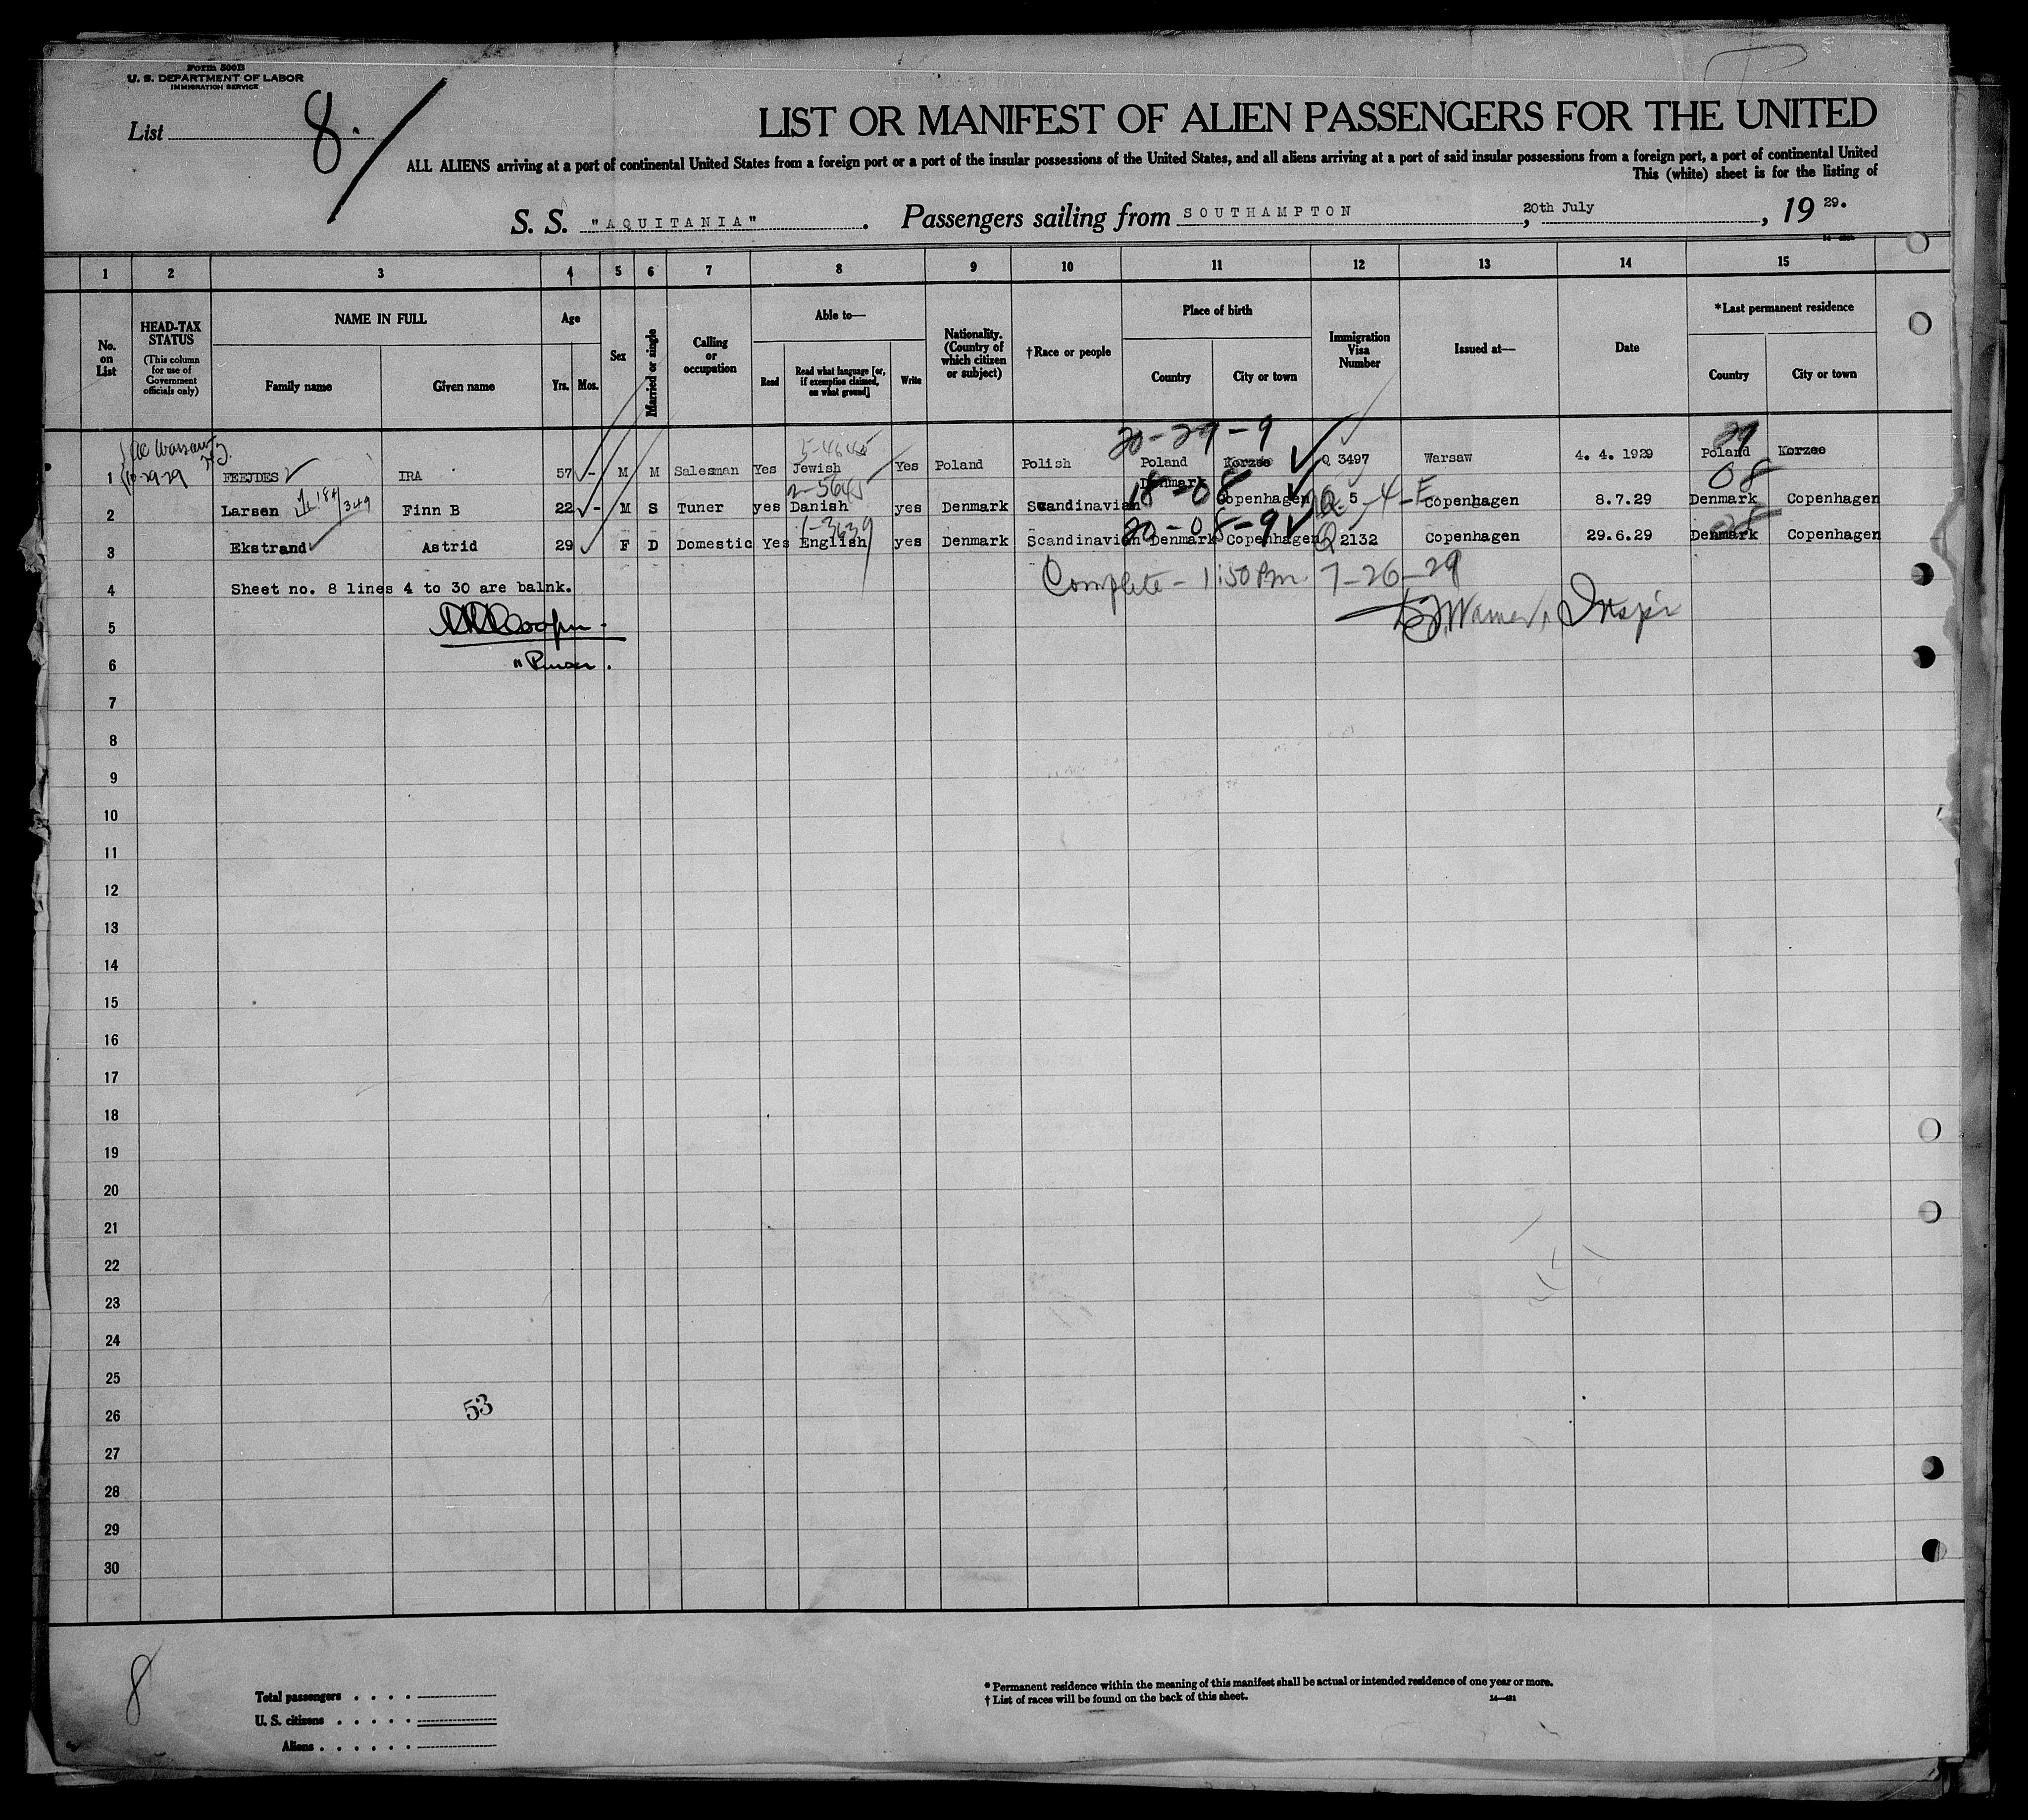 Form 500B
U. S. DEPARTMENT OF LABOR
IMMIGRATION SERVICE
List 8.
LIST OR MANIFEST OF ALIEN PASSENGERS FOR THE UNITED
ALL ALIENS arriving at a port of continental United States from a foreign port or a port of the insular possessions of the United States, and all aliens arriving at a port of said insular possessions from a foreign port, a port of continental United
This (white) sheet is for the listing of
S. S. "AQUITANIA". Passengers sailing from SOUTHAMPTON, 20th July, 19 29.
1 2 3 4 5 6 7 8 9 10 11 12 13 14 15
No. on List
HEAD-TAX STATUS
(This column for use of Government officials only)
NAME IN FULL
Family name Given name
Age
Yrs. Mos.
Sex
Married or single
Calling or occupation
Able to—
Read
Read what language [or, if exemption claimed, on what ground]
Write
Nationality. (Country of which citizen or subject)
†Race or people
Place of birth
Country City or town
Immigration Visa Number
Issued at—
Date
*Last permanent residence
Country City or town
20-29-9 29
1 FEEJDES IRA 57 - M M Salesman Yes Jewish Yes Poland Polish Poland Korzee Q 3497 Warsaw 4. 4. 1929 Poland Korzee
2-5645 18-08 08
2 Larsen 349 Finn B 22 - M S Tuner yes Danish yes Denmark Scandinavian Denmark Copenhagen Q 5 -4-E Copenhagen 8.7.29 Denmark Copenhagen
1-3639 20-08-9 08
3 Ekstrand Astrid 29 F D Domestic Yes English yes Denmark Scandinavian Denmark Copenhagen Q 2132 Copenhagen 29.6.29 Denmark Copenhagen
4 Sheet no. 8 lines 4 to 30 are balnk. Complete - 1:50 Pm. 7-26-29
5 Warner, Insp'r
6 "Purser.
7
8
9
10
11
12
13
14
15
16
17
18
19
20
21
22
23
24
25
26 53
27
28
29
30
8
Total passengers
U. S. citizens
Aliens
* Permanent residence within the meaning of this manifest shall be actual or intended residence of one year or more.
† List of races will be found on the back of this sheet.
14—421